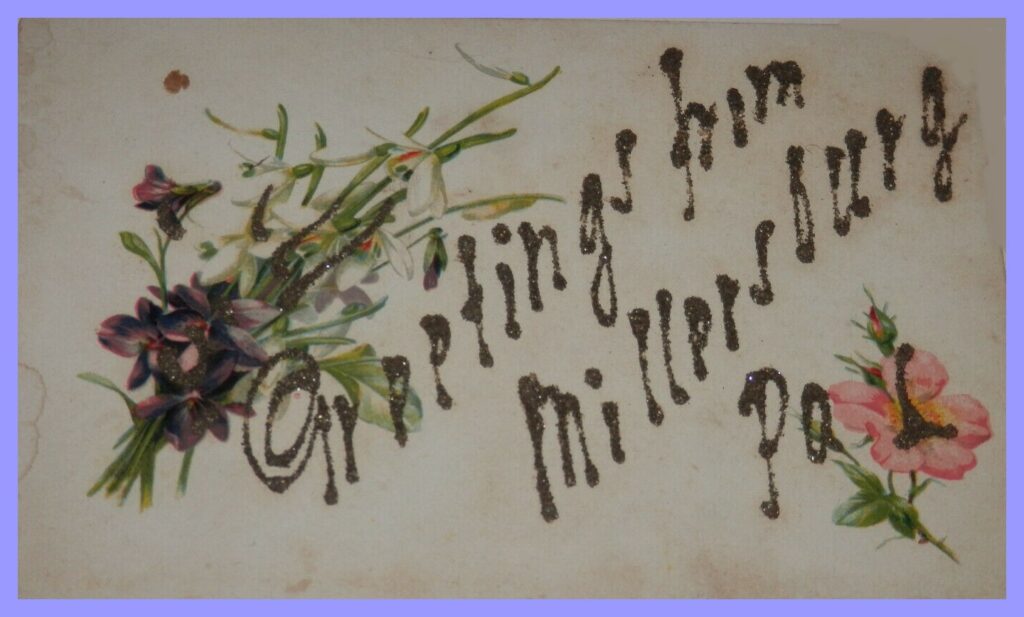 Greetings from
Millersburg
Pa